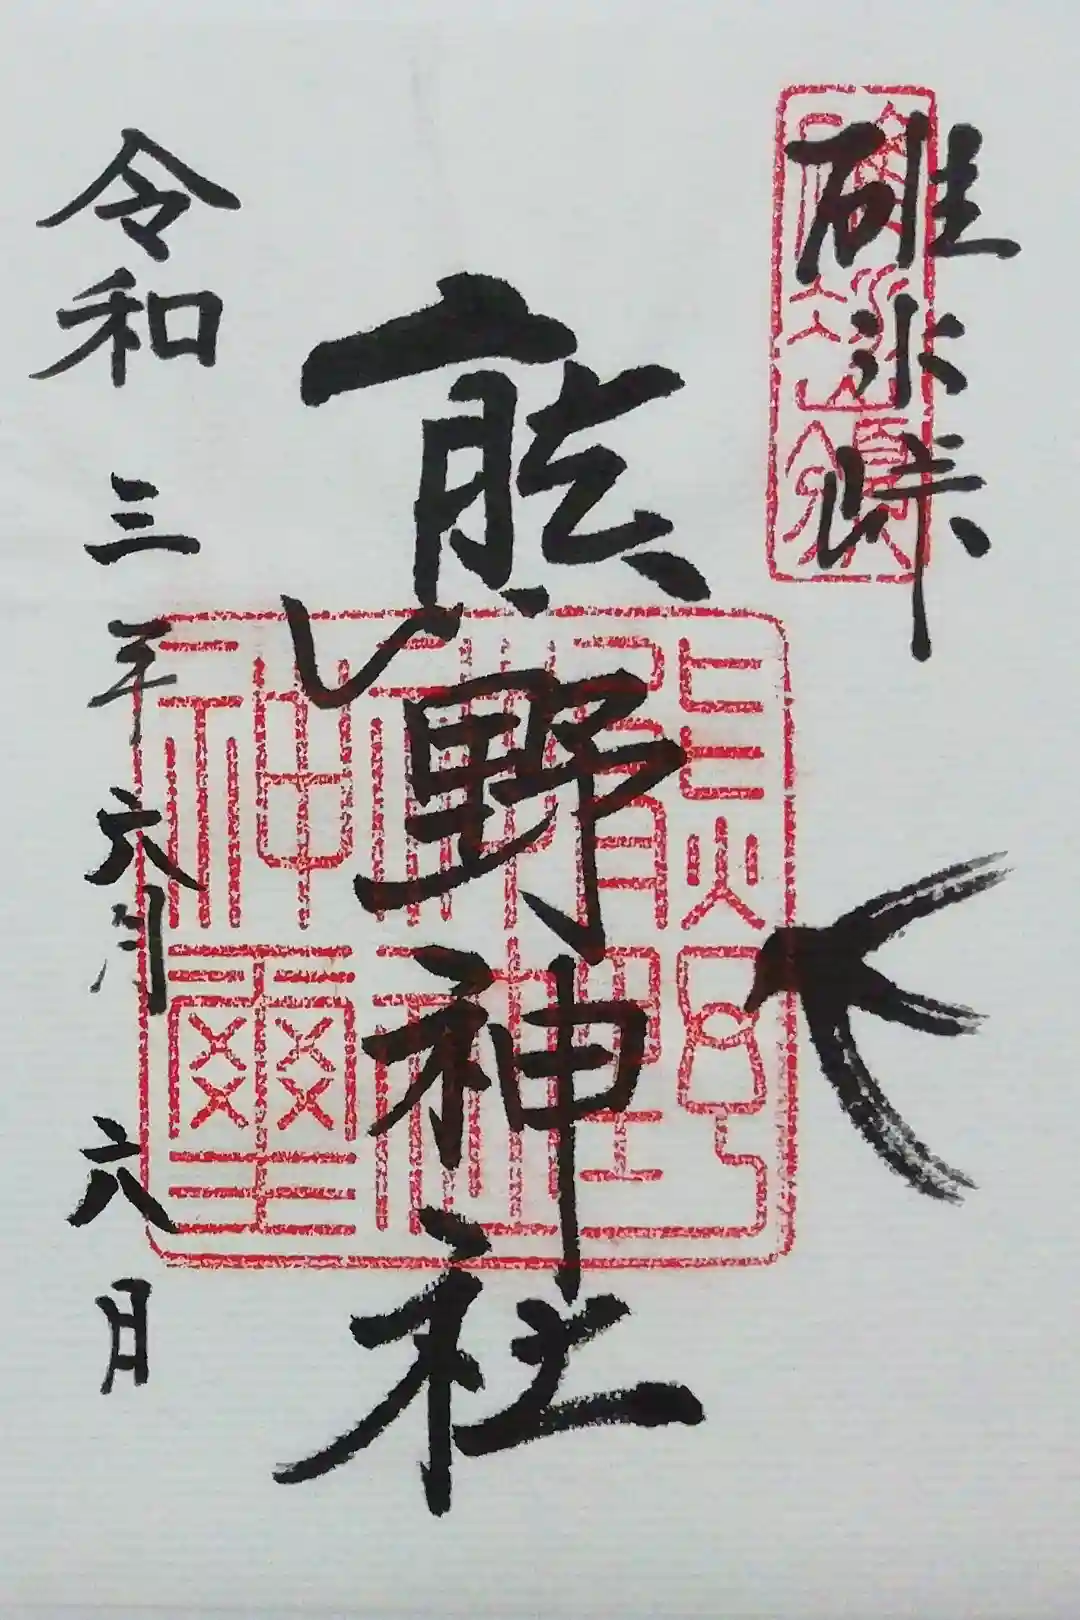 碓氷峠
熊野神社
令和三年六月六日
熊野神社神璽